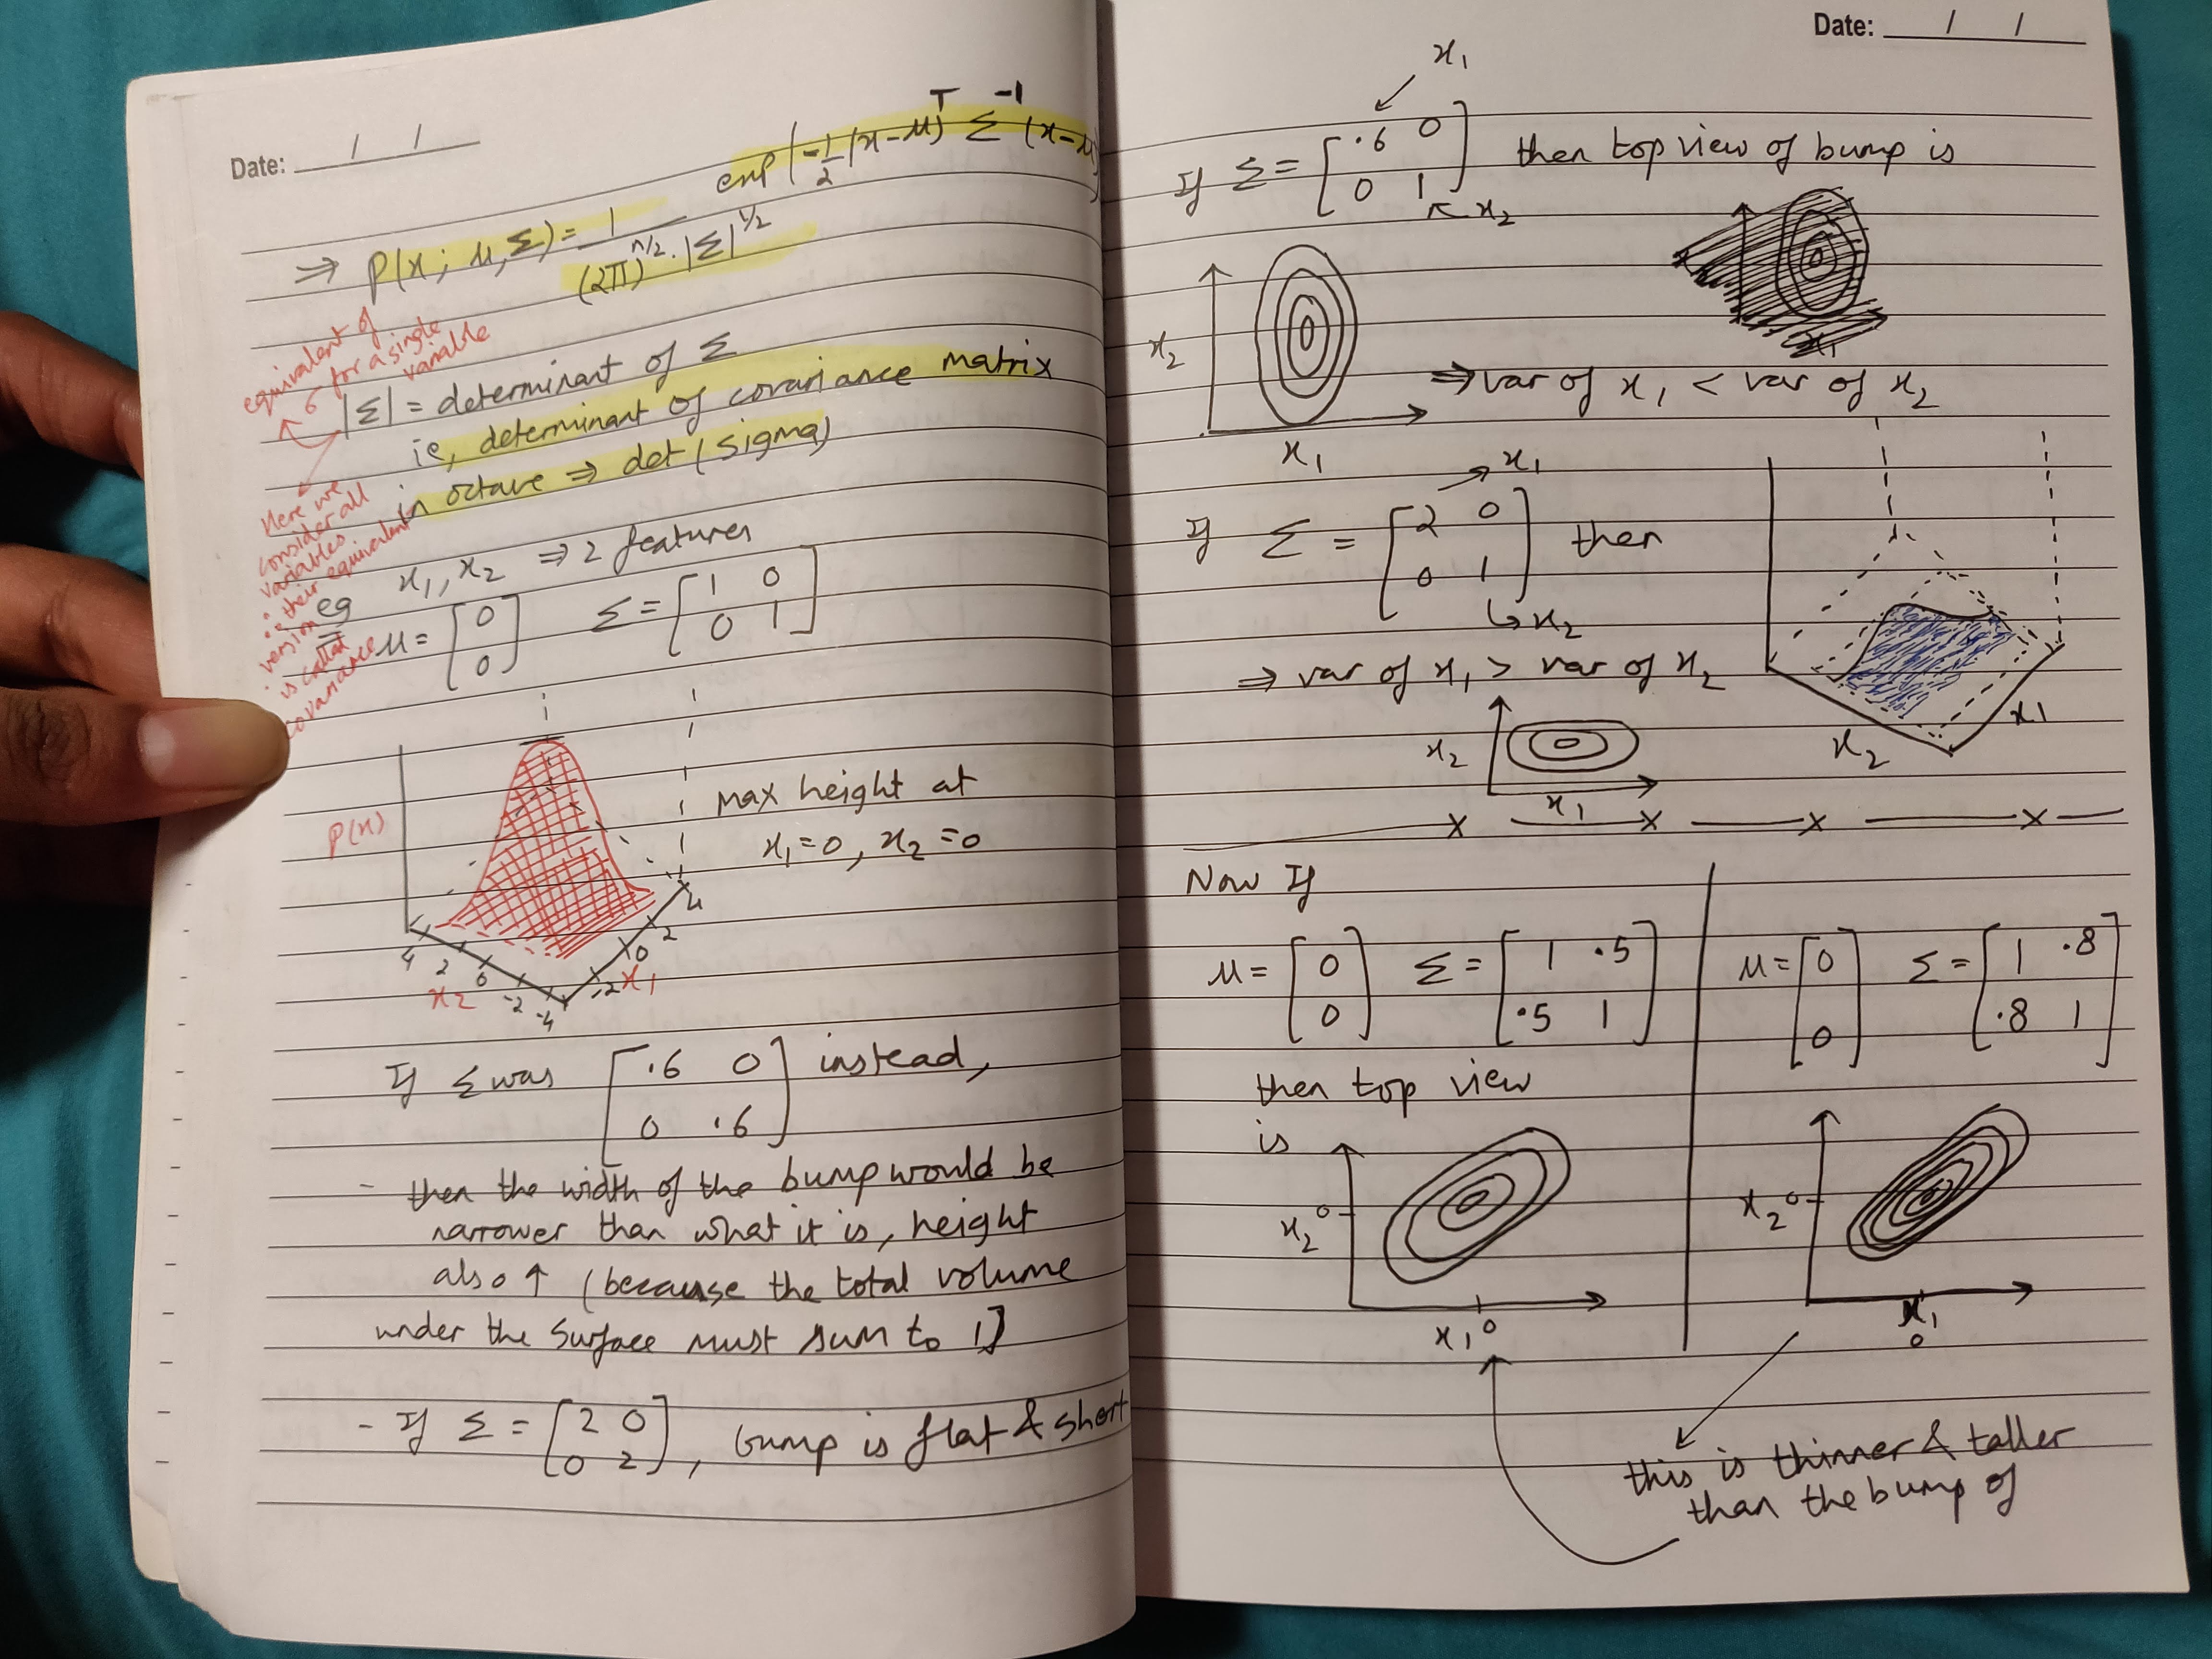 Date: / /
exp(-1/2 (x-μ)^T Σ^-1 (x-μ)
⇒ P(x; μ, Σ) = 1
(2π)^n/2 . |Σ|^1/2
equivalent of
σ for a single
variable
|Σ| = determinant of Σ
ie, determinant of covariance matrix
in octave ⇒ det(sigma)
Here we
consider all
variables
∴ their equivalent
version
is called
covariance
eg x1, x2 ⇒ 2 features
μ = [0 Σ = [1 0
0] 0 1]
P(x)
max height at
x1=0, x2=0
4 2 0 -2 -4
-2 0 2 4
x2 x1
If Σ was [.6 0
0 .6] instead,
- then the width of the bump would be
narrower than what it is, height
also ↑ (because the total volume
under the surface must sum to 1)
- If Σ = [2 0
0 2], bump is flat & short
Date: / /
x1
If Σ = [.6 0
0 1] then top view of bump is
x2
x2
x1
x1
⇒ var of x1 < var of x2
x1
If Σ = [2 0
0 1] then
x2
⇒ var of x1 > var of x2
x2
x1
x2
x1
Now If
μ = [0 Σ = [1 .5
0] .5 1]
then top view
is
x2 0
x1 0
μ = [0 Σ = [1 .8
0] .8 1]
x2 0
x1
0
this is thinner & taller
than the bump of